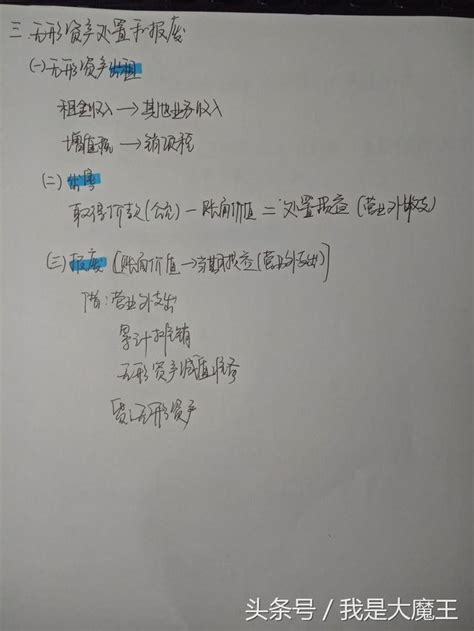 三、无形资产处置和报废
(一)无形资产出租
租金收入→其他业务收入
增值税→销项税
(二)出售
取得价款(公允)-账面价值=处置损益(营业外收支)
(三)报废[账面价值→当期损益(营业外支出)]
借:营业外支出
累计摊销
无形资产减值准备
贷:无形资产
头条号/我是大魔王